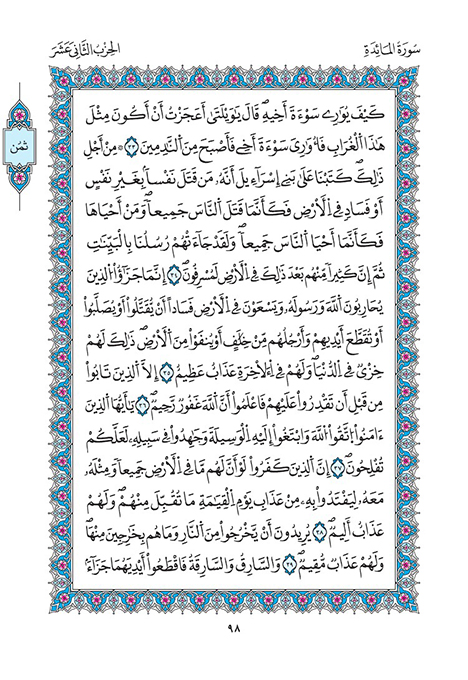 سُورَةُ المَائِدَةِ
الحِزْبُ الثَّانِي عَشَرَ
ثُمُن
كَيْفَ يُوَٰرِے سَوْءَةَ أَخِيهِۖ قَالَ يَٰوَيْلَتَىٰٓ أَعَجَزْتُ أَنْ أَكُونَ مِثْلَ
هَٰذَا اَلْغُرَابِ فَأُوَٰرِيَ سَوْءَةَ أَخِےۖ فَأَصْبَحَ مِنَ اَلنَّٰدِمِينَۖ ٣٣ ۞ مِنَ اَجْلِ
ذَٰلِكَۖ كَتَبْنَا عَلَىٰ بَنِےٓ إِسْرَآءِيلَ أَنَّهُۥ مَن قَتَلَ نَفْساً بِغَيْرِ نَفْسٍ
اَوْ فَسَادٍ فِے اِلَارْضِ فَكَأَنَّمَا قَتَلَ اَلنَّاسَ جَمِيعاًۖ وَمَنَ اَحْيَاهَا
فَكَأَنَّمَآ أَحْيَا اَلنَّاسَ جَمِيعاًۖ وَلَقَدْ جَآءَتْهُمْ رُسُلُنَا بِالْبَيِّنَٰتِ
ثُمَّ إِنَّ كَثِيراً مِّنْهُم بَعْدَ ذَٰلِكَ فِے اِلَارْضِ لَمُسْرِفُونَۖ ٣٤ إِنَّمَا جَزَٰٓؤُاْ اُلذِينَ
يُحَارِبُونَ اَللَّهَ وَرَسُولَهُۥ وَيَسْعَوْنَ فِے اِلَارْضِ فَسَاداً اَنْ يُّقَتَّلُوٓاْ أَوْ يُصَلَّبُوٓاْ
أَوْ تُقَطَّعَ أَيْدِيهِمْ وَأَرْجُلُهُم مِّنْ خِلَٰفٍ اَوْ يُنفَوْاْ مِنَ اَلَارْضِۖ ذَٰلِكَ لَهُمْ
خِزْيٌ فِے اِلدُّنْيَاۖ وَلَهُمْ فِے اِلَاخِرَةِ عَذَابٌ عَظِيمٌ ٣٥ إِلَّا اَلذِينَ تَابُواْ
مِن قَبْلِ أَن تَقْدِرُواْ عَلَيْهِمْۖ فَاعْلَمُوٓاْ أَنَّ اَللَّهَ غَفُورٌ رَّحِيمٌۖ ٣٦ يَٰٓأَيُّهَا اَلذِينَ
ءَامَنُواْ اُتَّقُواْ اُللَّهَ وَابْتَغُوٓاْ إِلَيْهِ اِلْوَسِيلَةَ وَجَٰهِدُواْ فِے سَبِيلِهِۦ لَعَلَّكُمْ
تُفْلِحُونَۖ ٣٧ إِنَّ اَلذِينَ كَفَرُواْ لَوَ اَنَّ لَهُم مَّا فِے اِلَارْضِ جَمِيعاً وَمِثْلَهُۥ
مَعَهُۥ لِيَفْتَدُواْ بِهِۦ مِنْ عَذَابِ يَوْمِ اِلْقِيَٰمَةِ مَا تُقُبِّلَ مِنْهُمْۖ وَلَهُمْ
عَذَابٌ اَلِيمٌۖ ٣٨ يُرِيدُونَ أَنْ يَّخْرُجُواْ مِنَ اَلنَّارِ وَمَا هُم بِخَٰرِجِينَ مِنْهَاۖ
وَلَهُمْ عَذَابٌ مُّقِيمٌۖ ٣٩ وَالسَّارِقُ وَالسَّارِقَةُ فَاقْطَعُوٓاْ أَيْدِيَهُمَا جَزَآءَۢ
٩٨